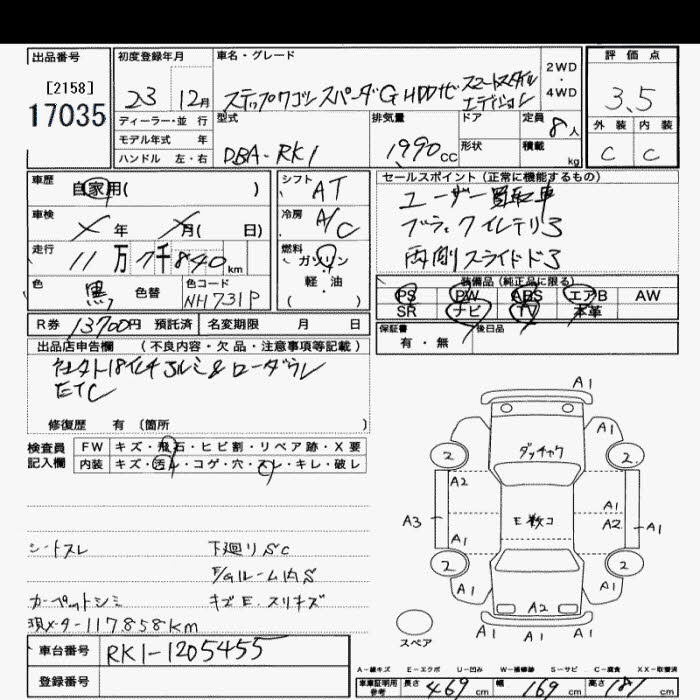 出品番号
[2158]
17035
初度登録年月
23 12月
ディーラー・並 行
モデル年式 年
ハンドル 左・右
車名・グレード
ステップワゴン スパーダG HDDナビ スマートスタイル
エディション
2WD
・
4WD
型式
DBA-RK1
排気量
1990cc
ドア
形状
定員
8人
積載
kg
評価点
3.5
外装 内装
C C
車歴
自家用( )
車検
年 月( 日)
走行
11万7千840km
色
黒 色替
色コード
NH731P
シフト
AT
冷房
A/C
燃料
ガソリン
・
軽・油
( )
セールスポイント(正常に機能するもの)
ユーザー買取車
ブラックインテリヨ
両側スライドドヨ
装備品(純正品に限る)
PS PW ABS エアB AW
SR ナビ TV 本革
保証書
有・無
後日品
R券 13700円 預託済
名変期限 月 日
出品店申告欄 (不良内容・欠品・注意事項等記載)
社外18インチアルミ&ローダウン
ETC
修復歴 有 (箇所 )
検査員
記入欄
FW キズ・飛石・ヒビ割・リペア跡・X要
内装 キズ・汚れ・コゲ・穴・スレ・キレ・破レ
シートスレ 下廻りSC
F/Gルーム内S
カーペットシミ キズE.スリキズ
現メーター117858km
車台番号 RK1-1205455
登録番号
A1
A1
2 ダッチャク 2
A2
A3 E数コ A1
A2 A1
A1
2 2
A1 A2 A1
A1 A1 A1
スペア
A-線キズ E-エクボ U-凹ミ W-補修跡 S-サビ C-腐食 XX-交換済
車庫証明用
参考
長さ 469cm 幅 169cm 高さ 181cm